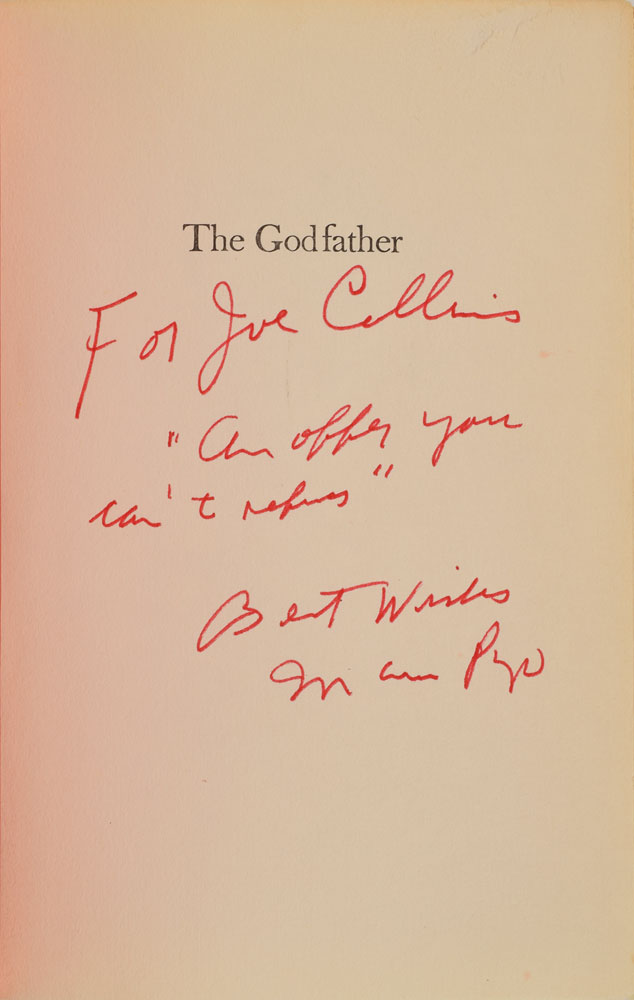 The Godfather
For Joe Collins
"An offer you
can't refuse"
Best Wishes
Mario Puzo